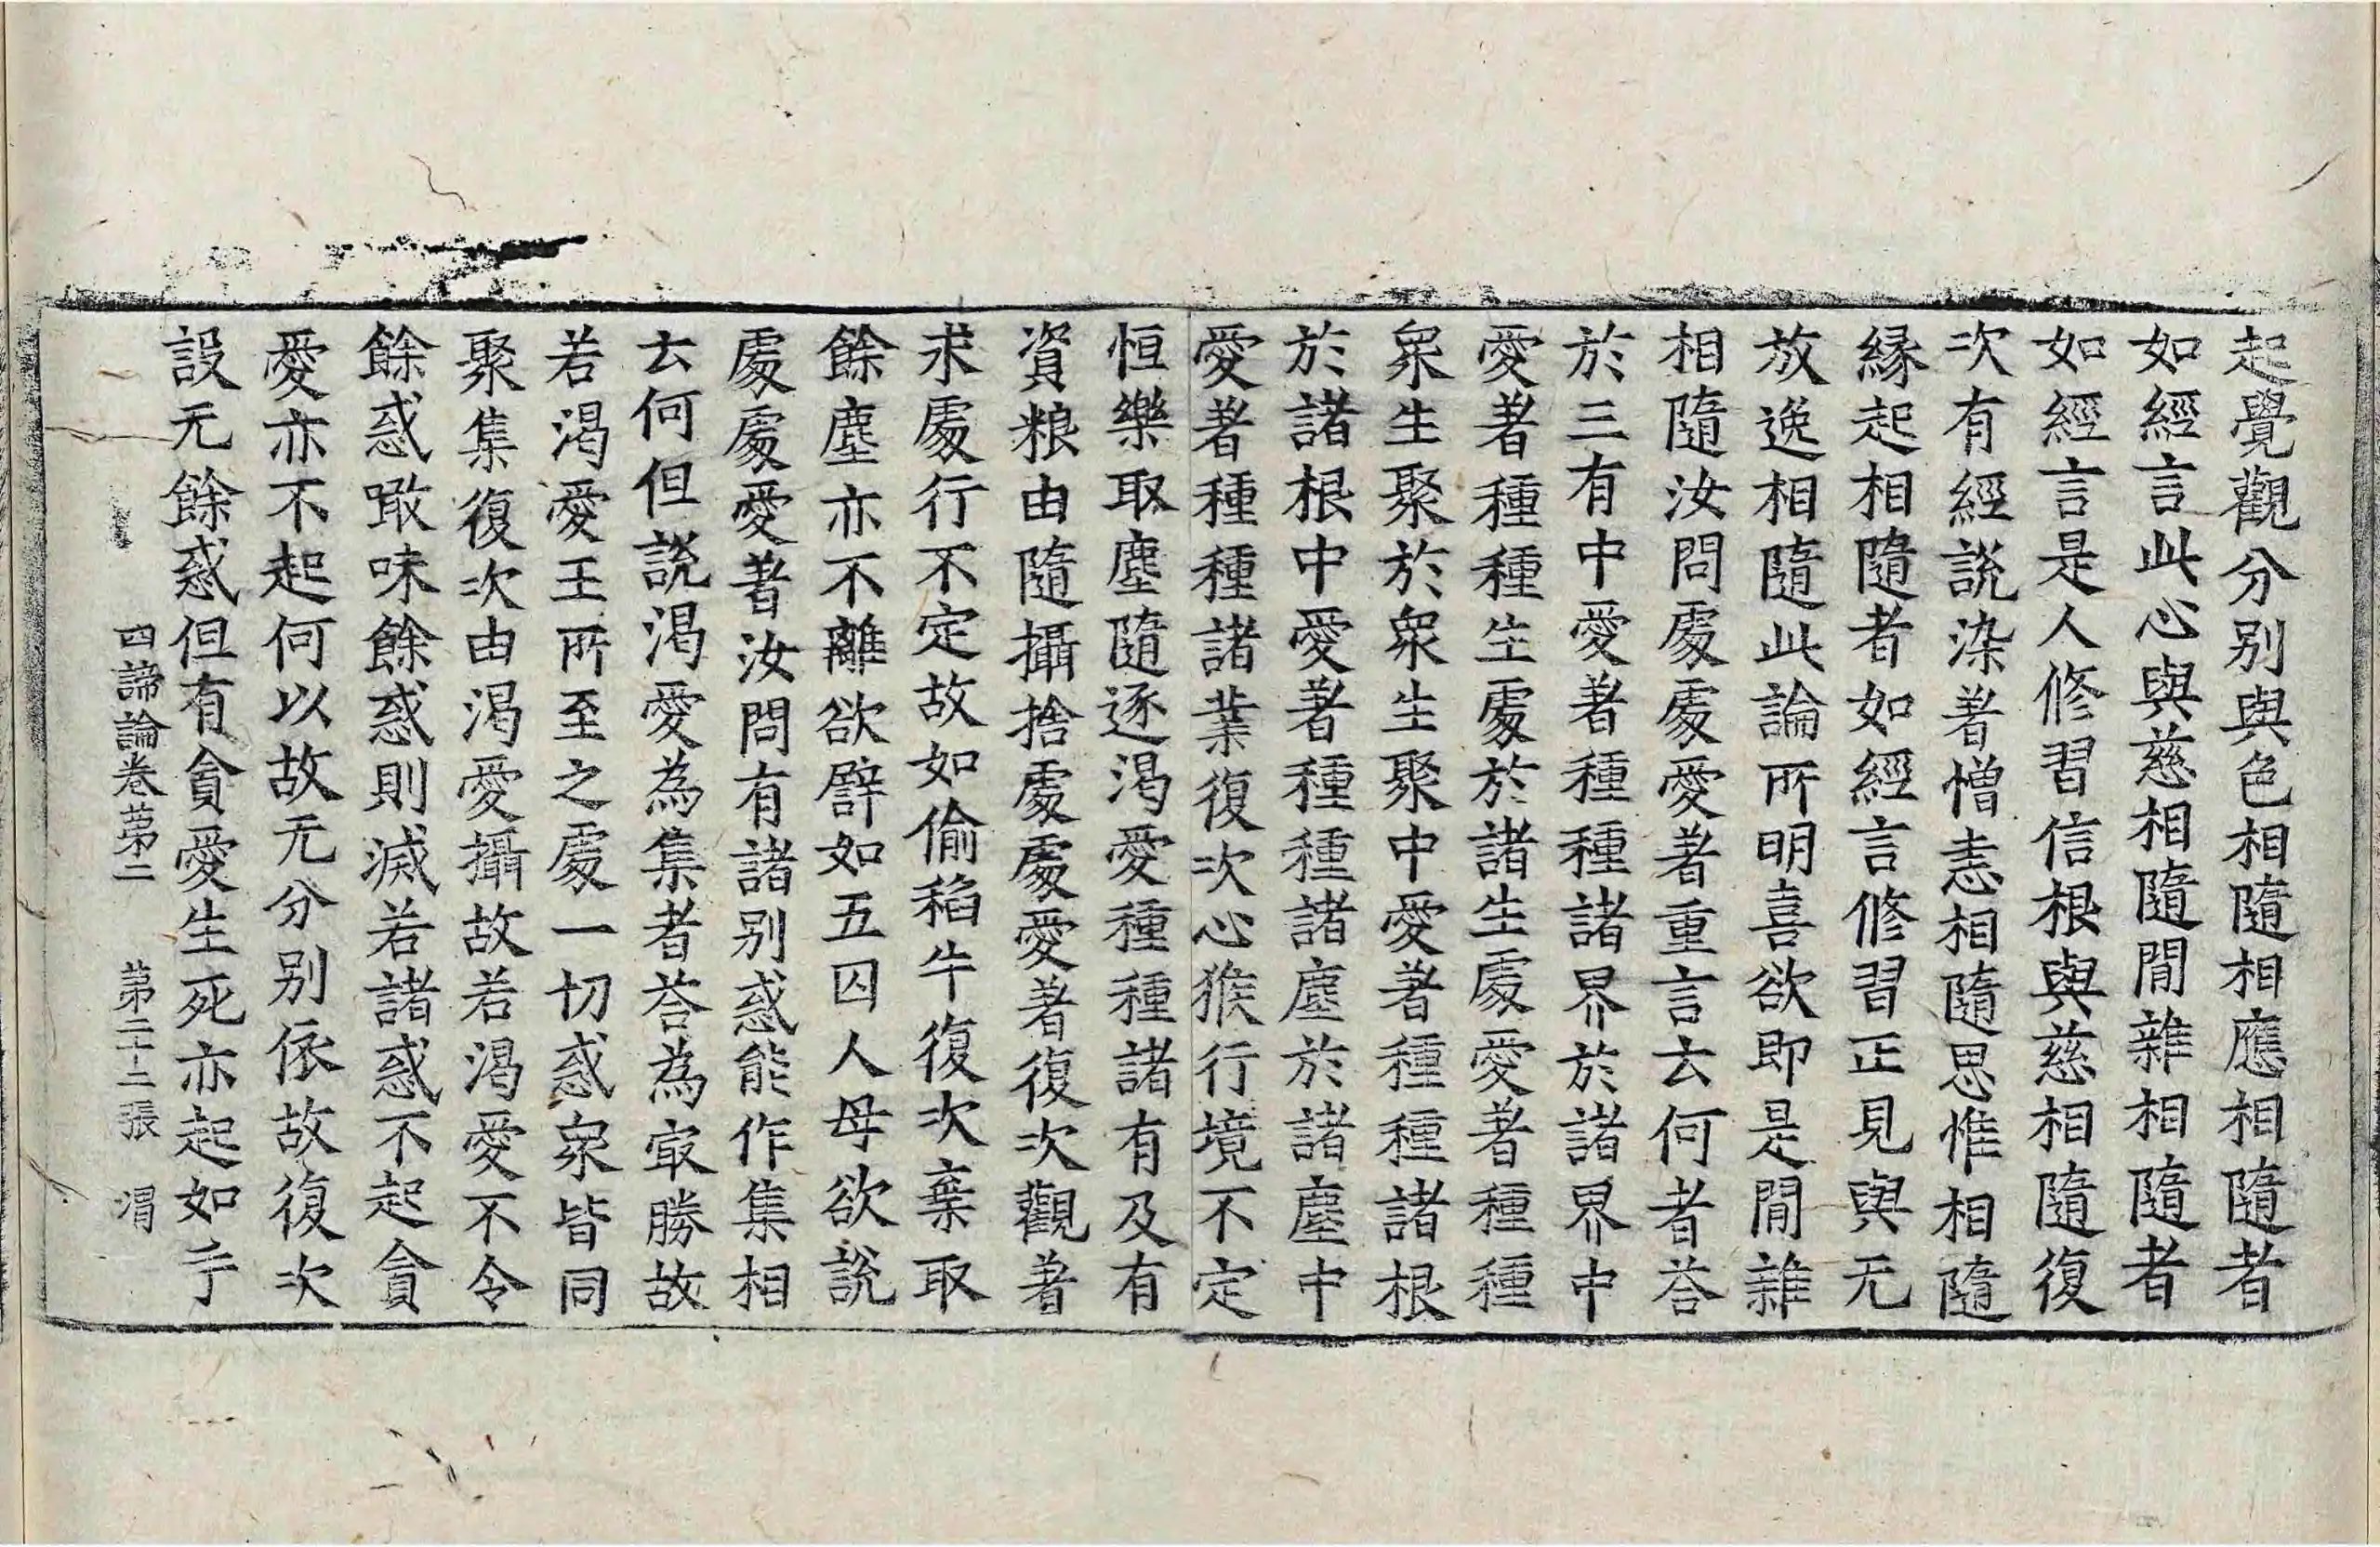 起覺觀分別與色相隨相應相隨者
如經言此心與慈相隨間雜相隨者
如經言是人修習信根與慈相隨復
次有經說染著憎恚相隨思惟相隨
緣起相隨者如經言修習正見與无
放逸相隨此論所明喜欲即是間雜
相隨汝問處處愛著重言云何者荅
於三有中愛著種種諸界於諸界中
愛著種種生處於諸生處愛著種種
衆生聚於衆生聚中愛著種種諸根
於諸根中愛著種種諸塵於諸塵中
愛著種種諸業復次心猴行境不定
恒樂取塵隨逐渴愛種種諸有及有
資粮由隨攝捨處處愛著復次觀著
求處行不定故如偷稻牛復次棄取
餘塵亦不離欲譬如五囚人母欲說
處處愛著汝問有諸別惑能作集相
云何但說渴愛為集者荅為㝡勝故
若渴愛王所至之處一切惑衆皆同
聚集復次由渴愛攝故若渴愛不令
餘惑噉味餘惑則滅若諸惑不起貪
愛亦不起何以故无分別依故復次
設无餘惑但有貪愛生死亦起如于
四諦論卷苐二 苐二十二張 渭